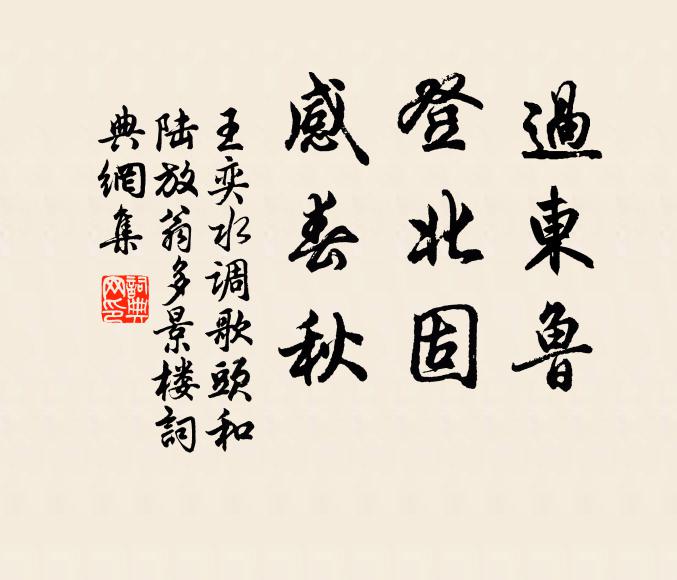 過東魯
登北固
感春秋
王奕水调歌頭和
陆放翁多景楼詞
典網集
詞典网印